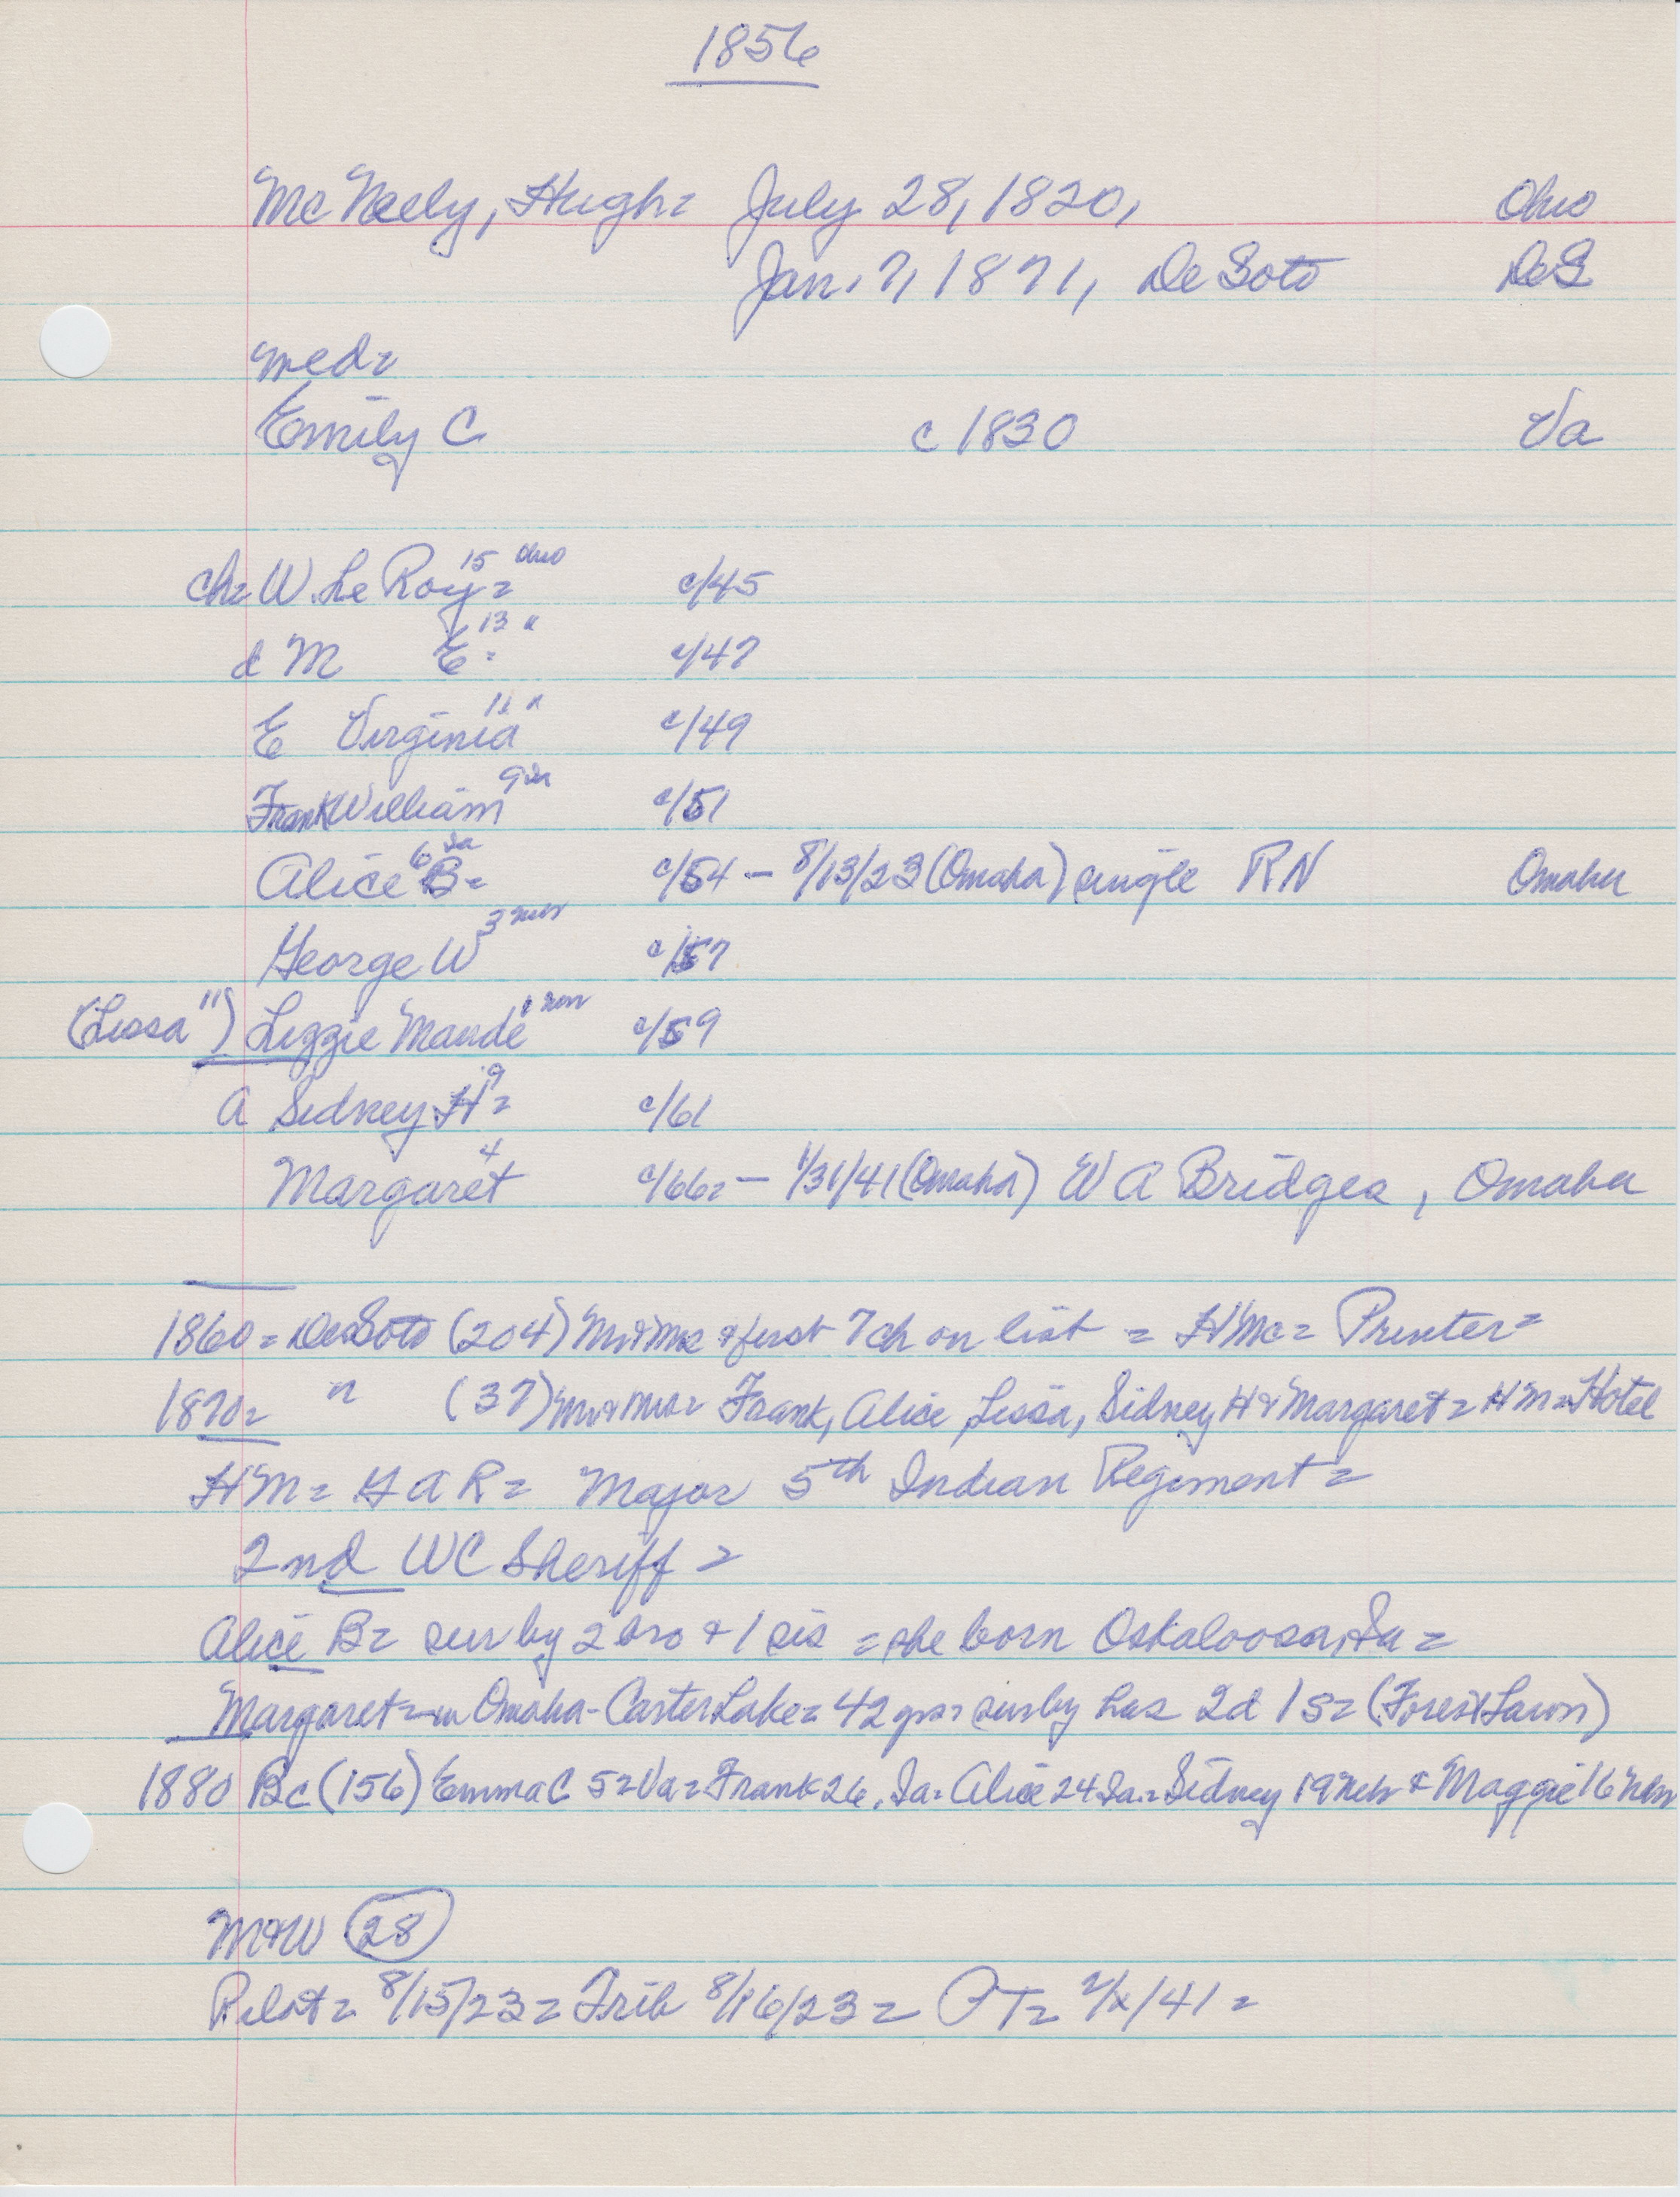 1856
McNeely, Hugh= July 28, 1820, Ohio
Jan. 7, 1871, De Soto DeS
med=
Emily C c 1830 Va
ch= W. Le Roy= 15 Ohio c/45
d M E= 13 " c/47
E Virginia 11 " c/49
Frank William 9 Ia c/51
Alice B= 6 Ia c/54 - 8/13/23 (Omaha) single RN Omaha
George W 3 Neb c/57
(Lissa") Lizzie Maude 1 Neb c/59
A Sidney H= 9 c/61
Margaret 4 c/66= - 1/31/41 (Omaha) W A Bridges, Omaha
1860= DeSoto (204) Mr & Mrs & first 7 ch on list = HMc= Printer=
1870= " (37) Mr & Mrs= Frank, Alice, Lissa, Sidney H & Margaret= HM= Hotel
HM= G A R= Major 5th Indian Regiment=
2nd WC Sheriff=
Alice B= sur by 2 bro & 1 sis = she born Oskaloosa, Ia=
Margaret= in Omaha-Carter Lake= 42 yrs= sur by hus 2d 1s= (Forest Lawn)
1880 Bc (156) Emma C 5= Va= Frank 26, Ia= Alice 24 Ia= Sidney 19 Neb & Maggie 16 Neb
M&W 28
Pilot= 8/15/23= Trib 8/16/23= PT= 2/x/41=